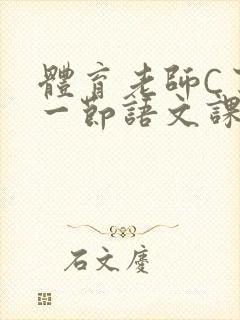 體育老師C
一節語文課
石文慶